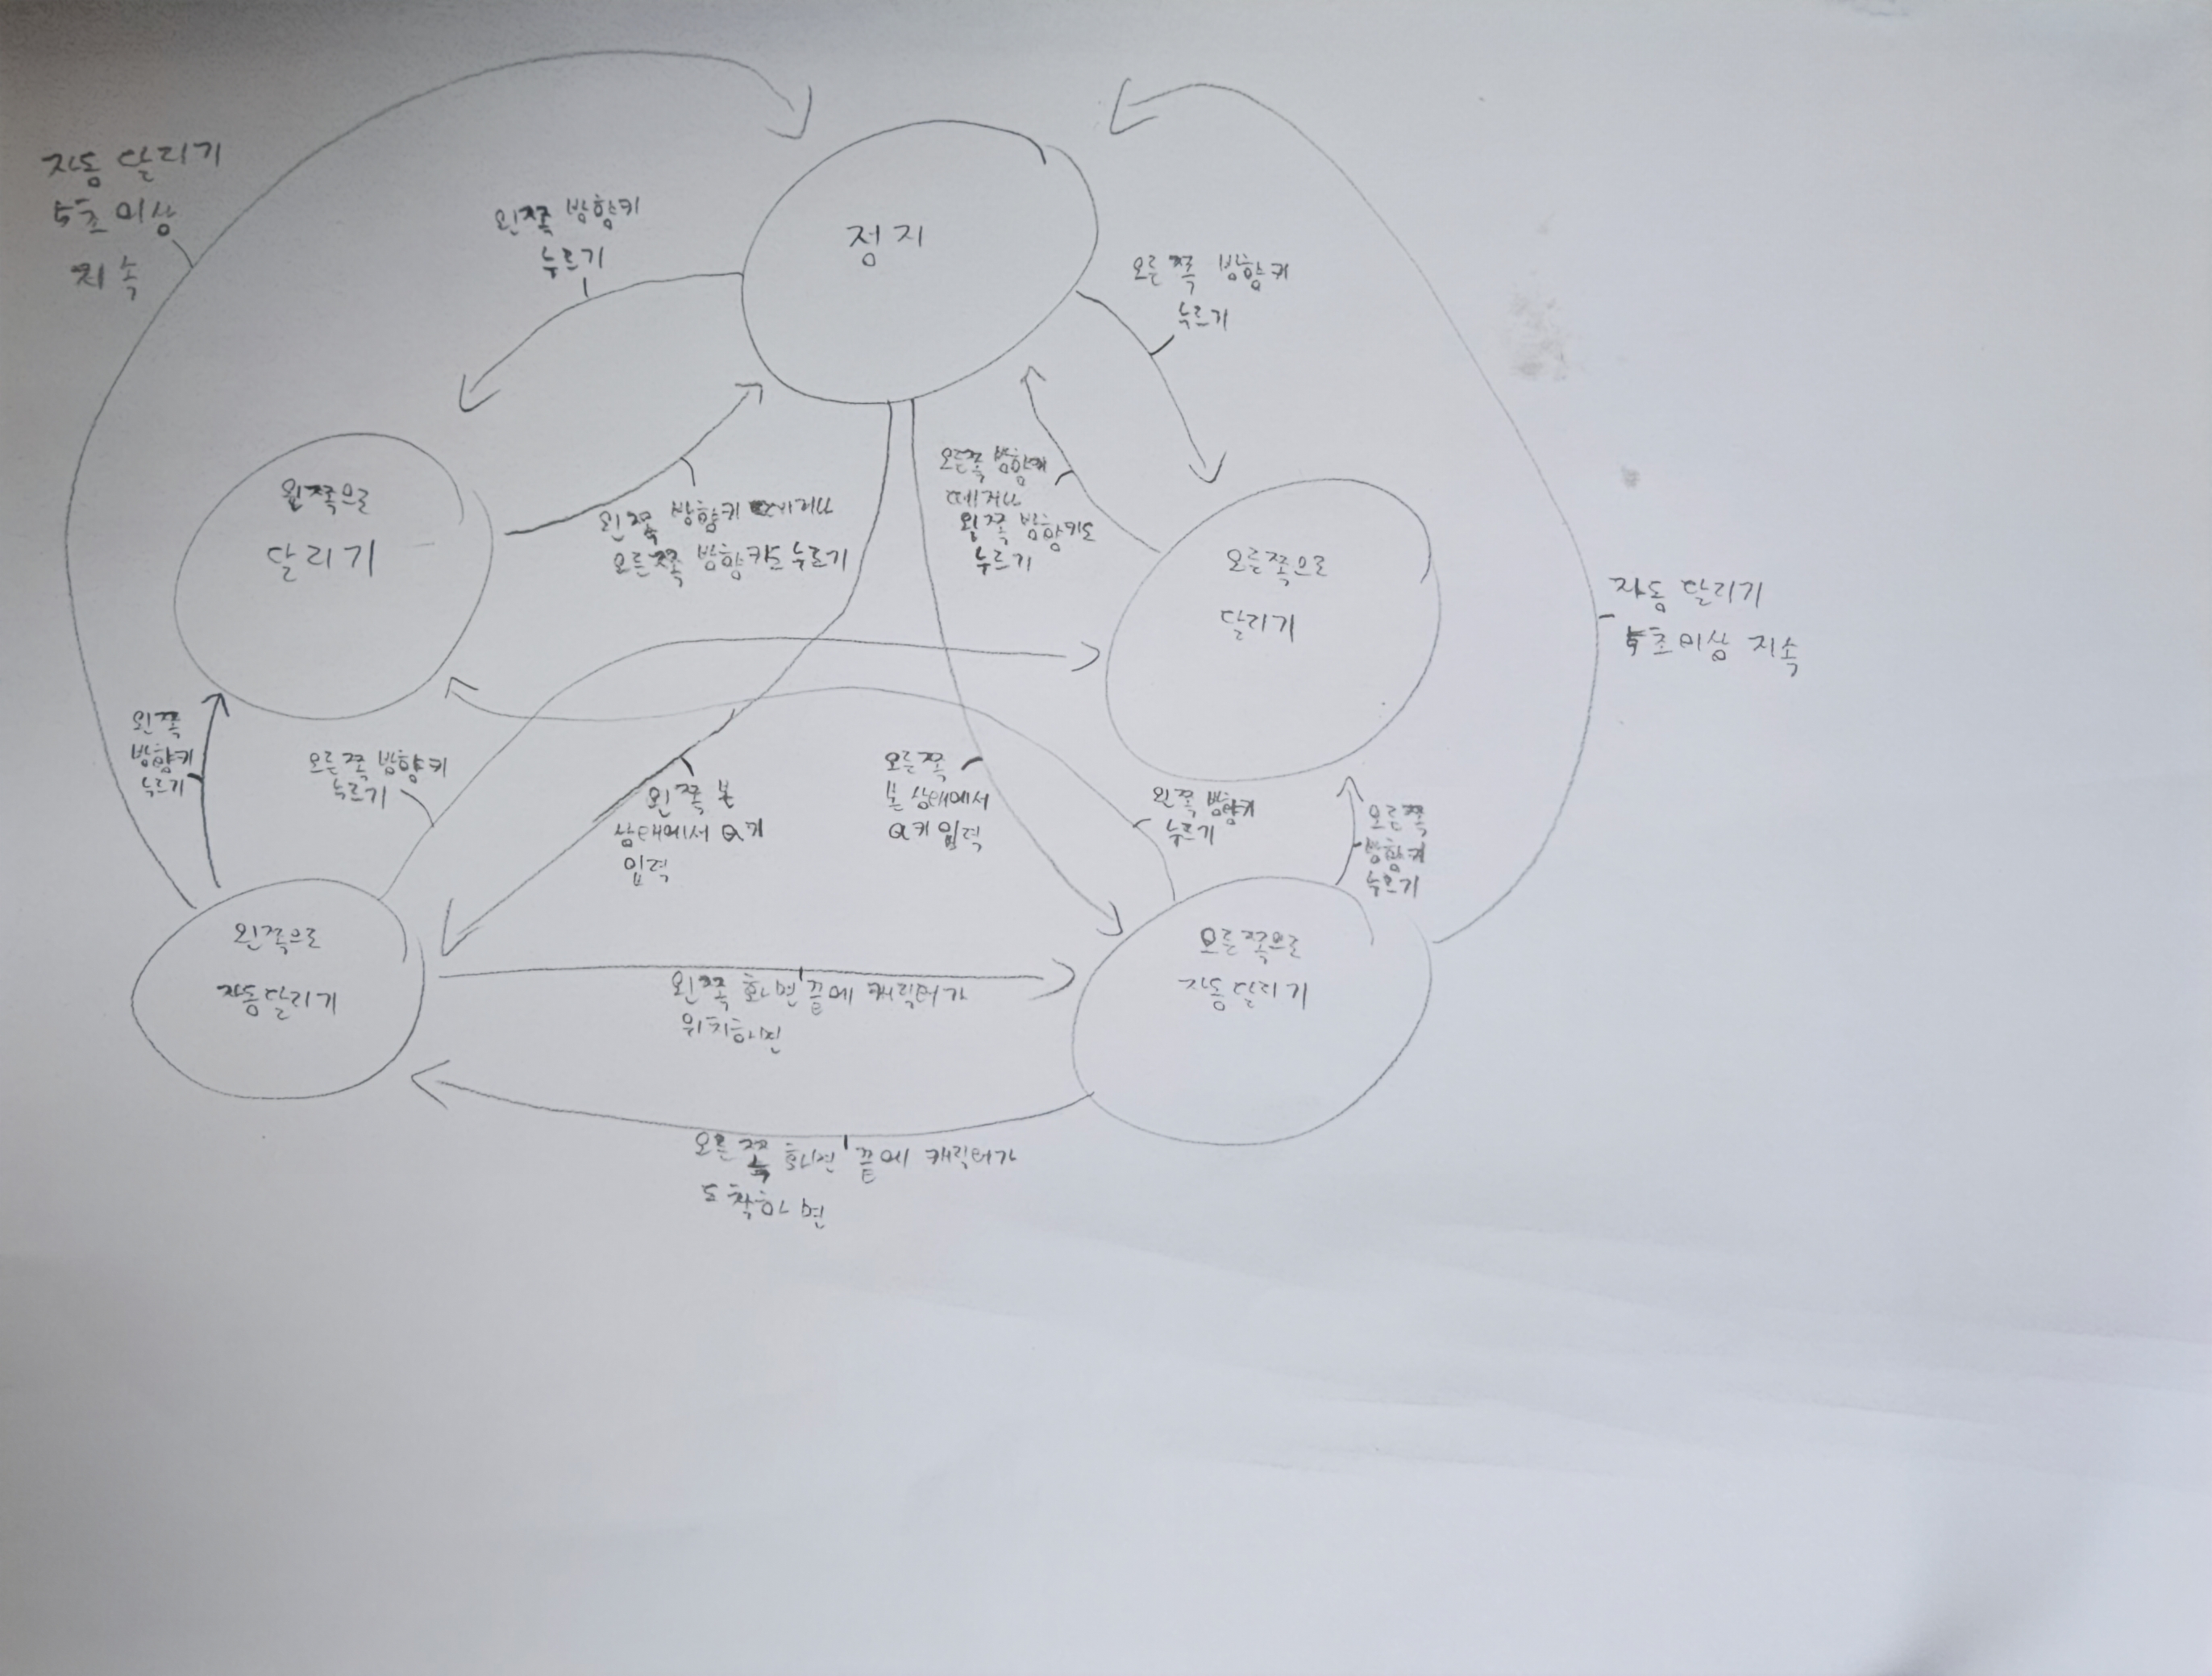 자동 달리기
5초 이상
지속
왼쪽 방향키
누르기
정지
오른쪽 방향키
누르기
왼쪽으로
달리기
왼쪽 방향키 떼거나
오른쪽 방향키도 누르기
오른쪽 방향키
떼거나
왼쪽 방향키도
누르기
오른쪽으로
달리기
자동 달리기
5초이상 지속
왼쪽
방향키
누르기
오른쪽 방향키
누르기
왼쪽 본
상태에서 Q키
입력
오른쪽
본 상태에서
Q키 입력
왼쪽 방향키
누르기
오른쪽
방향키
누르기
왼쪽으로
자동달리기
오른쪽으로
자동달리기
왼쪽 화면 끝에 캐릭터가
위치하면
오른쪽 화면 끝에 캐릭터가
도착하면